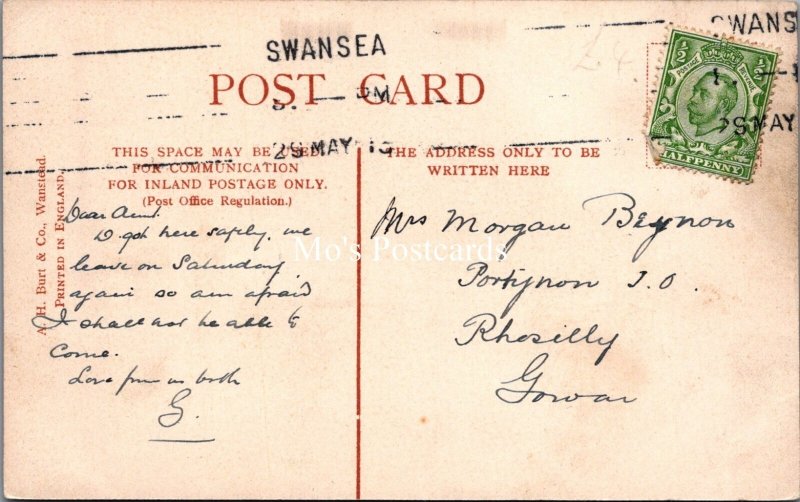 SWANSEA
SWANS
POST CARD
PM
29 MAY 13
29 MAY
½ POSTAGE REVENUE ½
HALFPENNY
THIS SPACE MAY BE USED
FOR COMMUNICATION
FOR INLAND POSTAGE ONLY.
(Post Office Regulation.)
THE ADDRESS ONLY TO BE
WRITTEN HERE
A. H. Burt & Co., Wanstead.
PRINTED IN ENGLAND.
Dear Aunt.
D got here safely, we
leave on Saturday
again so am afraid
I shall not be able to
come.
Love from us both
G.
Mrs Morgan Beynon
Portynon S.O.
Rhosilly
Gowar
Mo's Postcards
£4.